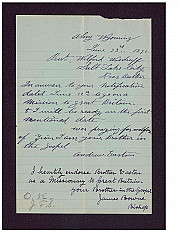 Almy Wyoming
June 23rd 189
Pres. Wilford Woodruff
Salt Lake City
Dear Brother
In answer to your Notification
dated June 12 to go on a
Mission to great Britain
I will be ready at the first
mentioned date.
ever praying for welfare
of Zion I am your Brother in
the Gospel
Andrew Easton
I heartily endorse Brother Easton
as a Missionary to Great Britain
your Brother in the Gospel
James Bowns
Bishop